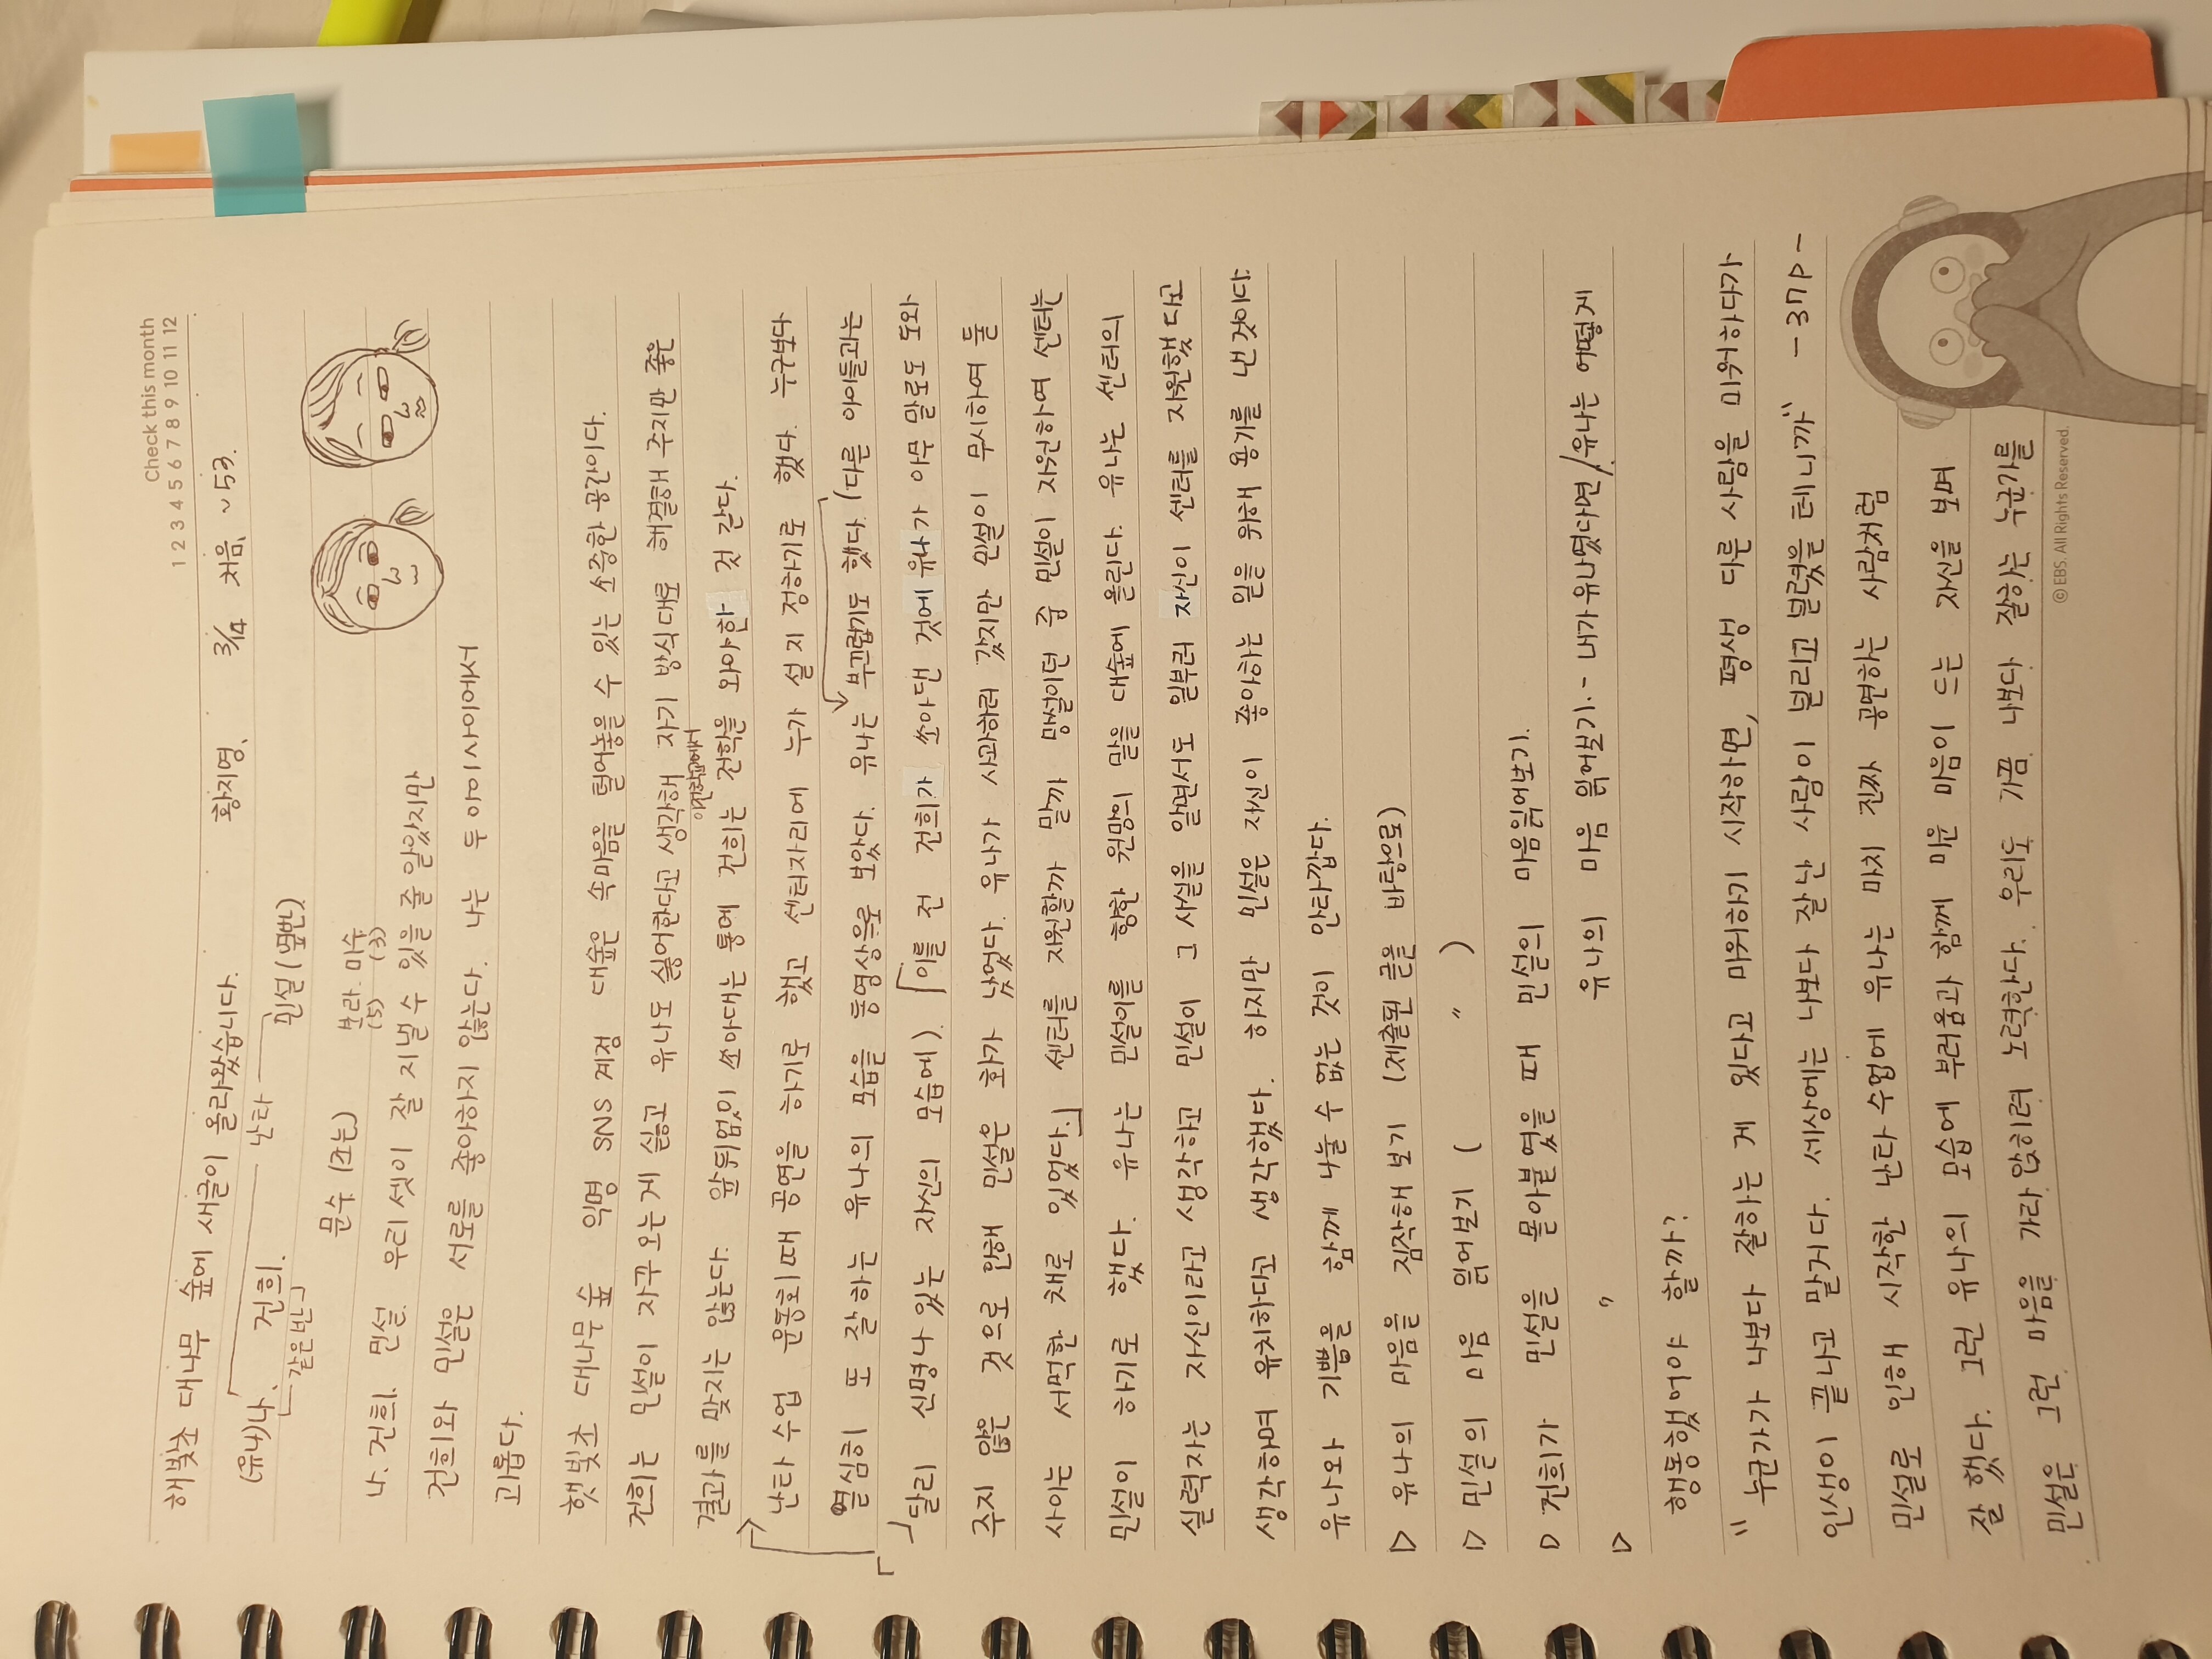 Check this month
1 2 3 4 5 6 7 8 9 10 11 12
해빛초 대나무 숲에 새글이 올라왔습니다. 황지명, 3/14 처음, ~53.
(유나)나, 건희. 난타 민설(옆반)
같은반
문수 (조는) 보라. 미수
(5) (3)
나. 건희. 민설. 우리 셋이 잘 지낼 수 있을 줄 알았지만
건희와 민설은 서로를 좋아하지 않는다. 나는 두 아이 사이에서
괴롭다.
햇빛초 대나무 숲 익명 SNS 계정 대숲은 속마음을 털어놓을 수 있는 소중한 공간이다.
건희는 민설이 자꾸 오는게 싫고 유나도 싫어한다고 생각해 자기 방식대로 해결해 주지만 좋은
결과를 맞지는 않는다. 앞뒤없이 쏘아대는 통에 건희는 건학을 와야한 것 같다.
난타 수업 운동회 때 공연을 하기로 했고 센터자리에 누가 설 지 정하기로 했다. 누구보다
열심히 또 잘하는 유나의 모습을 동영상으로 보았다. 유나는 부끄럽기도 했다. (다른 아이들과는
달리 신명나 있는 자신의 모습에). 「이틀 전 건희가 쏘아댄 것에 유나가 아무 말로도 도와
주지 않은 것으로 인해 민설은 화가 났었다. 유나가 사과하러 갔지만 민설이 무시하여 둘
사이는 서먹한 채로 있었다.」 센터를 지원할까 말까 망설이던 중 민설이 자원하여 센터는
민설이 하기로 했다. 유나는 민설이를 향한 원망의 말을 대숲에 올린다. 유나는 센터의
실력자는 자신이라고 생각하고 민설이 그 사실을 알면서도 일부러 자신이 센터를 지원했다고
생각하며 유치하다고 생각했다. 하지만 민설은 자신이 좋아하는 일을 위해 용기를 낸것이다.
유나와 기쁨을 함께 나눌 수 없는 것이 안타깝다.
▷ 유나의 마음을 짐작해 보기 (제출된 글을 바탕으로)
▷ 민설의 마음 읽어보기 ( 〃 )
▷ 건희가 민설을 몰아붙였을 때 민설의 마음읽어보기.
▷ 〃 유나의 마음 읽어보기. - 내가 유나였다면 / 유나는 어떻게
행동했어야 할까?
"누군가가 나보다 잘하는 게 있다고 미워하기 시작하면, 평생 다른 사람을 미워하다가
인생이 끝나고 말거다. 세상에는 나보다 잘난 사람이 널리고 널렸을 테니까" - 37p -
민설로 인해 시작한 난타 수업에 유나는 마치 진짜 공연하는 사람처럼
잘 했다. 그런 유나의 모습에 부러움과 함께 미운 마음이 드는 자신을 보며
민설은 그런 마음을 가라앉히려 노력한다. 우리도 가끔 나보다 잘하는 누군가를
© EBS. All Rights Reserved.